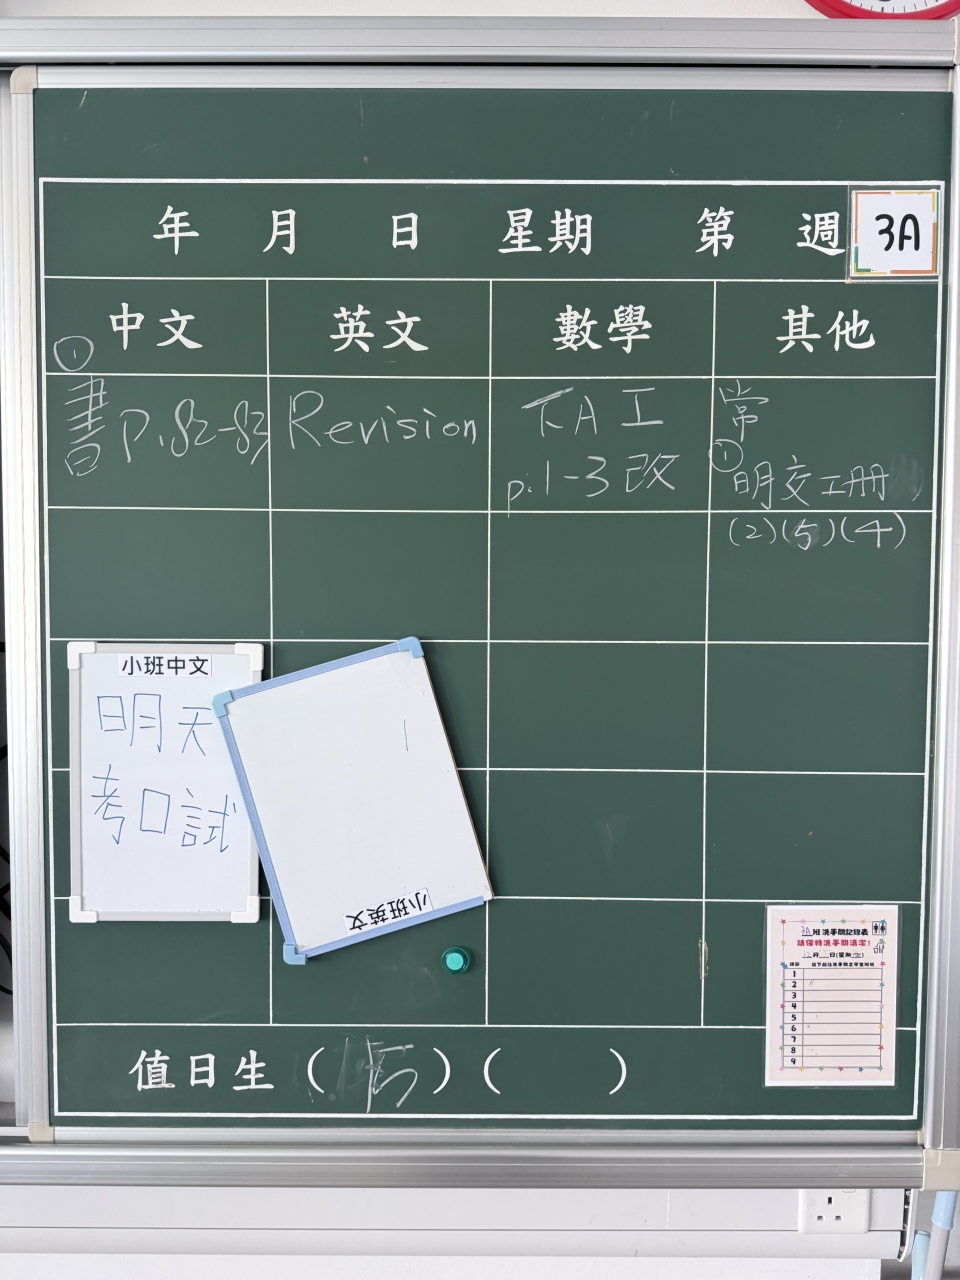 年 月 日 星期 第 週 3A
中文 英文 數學 其他
①
書 P.82-83
Revision
TA 工
p.1-3 改
常
① 明交工冊
(2)(5)(4)
小班中文
明天
考口試
小班英文
3A班洗手間記錄表
請保持洗手間清潔!
月 日(星期 )
1
2
3
4
5
6
7
8
9
值日生( 5 )( )